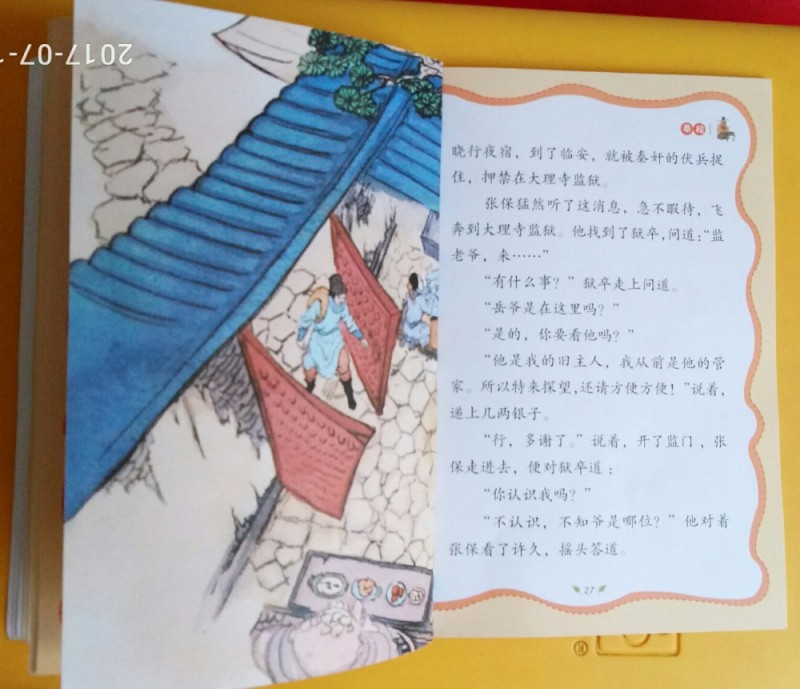 2017-07-1
秦桧
晓行夜宿，到了临安，就被秦奸的伏兵捉
住，押禁在大理寺监狱。
张保猛然听了这消息，急不暇待，飞
奔到大理寺监狱。他找到了狱卒，问道：“监
老爷，来……”
“有什么事？”狱卒走上问道。
“岳爷是在这里吗？”
“是的，你要看他吗？”
“他是我的旧主人，我从前是他的管
家。所以特来探望，还请方便方便！”说着，
递上几两银子。
“行，多谢了。”说着，开了监门，张
保走进去，便对狱卒道：
“你认识我吗？”
“不认识，不知爷是哪位？”他对着
张保看了许久，摇头答道。
27
®